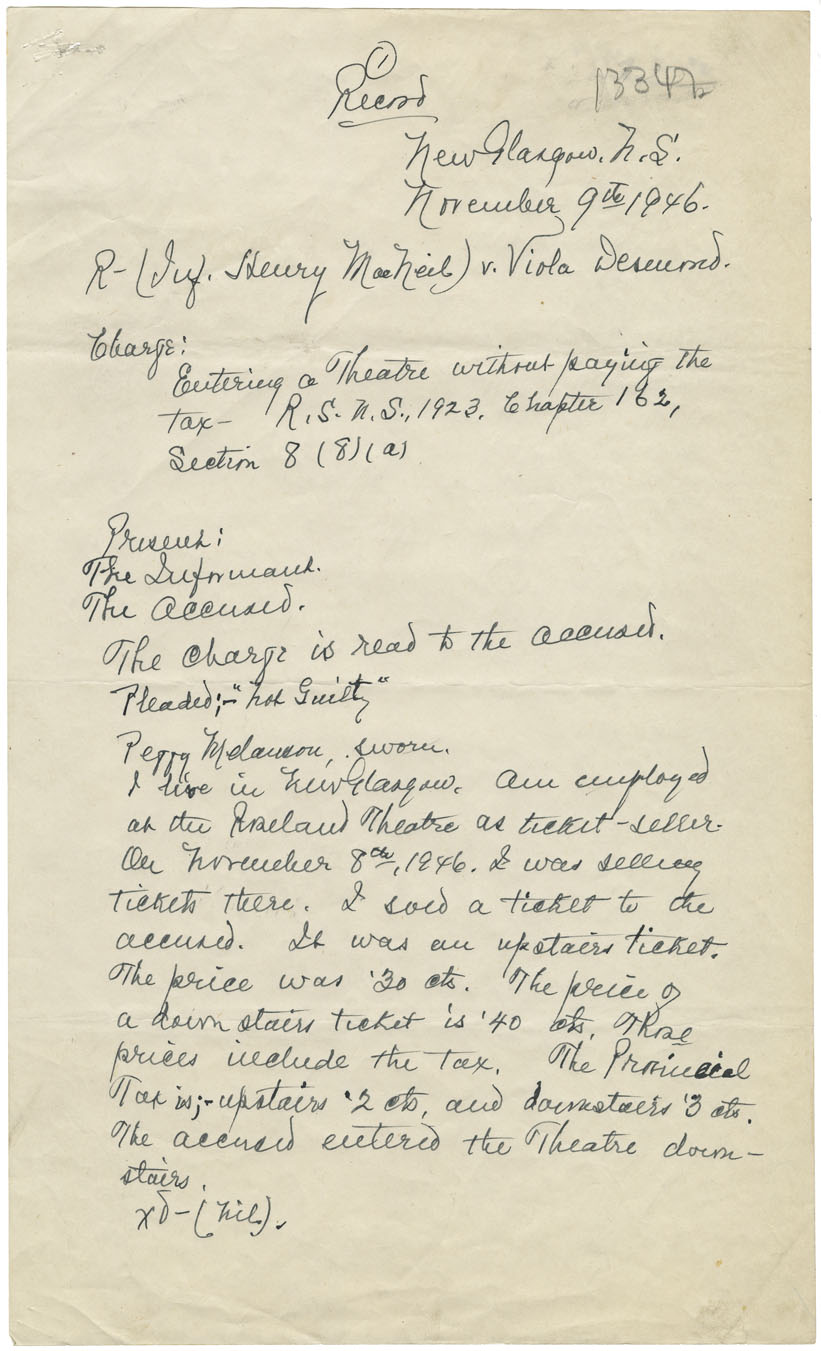 ①
13347
Record
New Glasgow. N.S.
November 9th 1946.
R- (Inf. Henry MacNeil) v. Viola Desmond.
Charge:
Entering a Theatre without paying the
tax- R.S.N.S., 1923. Chapter 162,
Section 8 (8) (a)
Present:
The Informant.
The Accused.
The charge is read to the accused.
Pleaded;- "Not Guilty"
Peggy Melanson, sworn.
I live in New Glasgow. Am employed
at the Roseland Theatre as ticket-seller.
On November 8th, 1946. I was selling
tickets there. I sold a ticket to the
accused. It was an upstairs ticket.
The price was '30 cts. The price of
a down stairs ticket is '40 cts. Those
prices include the tax. The Provincial
Tax is;- upstairs '2 cts, and downstairs '3 cts.
The accused entered the Theatre down-
stairs.
xd- (Nil).